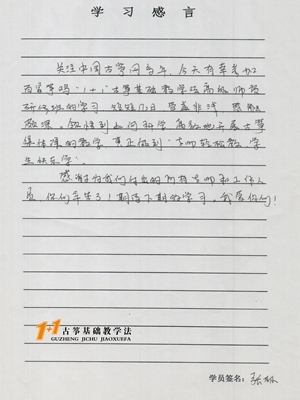 学习感言
关注中国古筝网多年,今天有幸参加
百度筝鸣"1+1"古筝基础教学法高级师资
研修班的学习 短短几日 受益非浅 感触
很深。领悟到如何科学 高效地开展古筝
集体课的教学 真正做到"老师轻松教 学
生快乐学"。
感谢为我们付出的所有老师和工作人
员 你们辛苦了!期待下期的学习,我爱你们!
1+1古筝基础教学法
GUZHENG JICHU JIAOXUEFA
学员签名:张